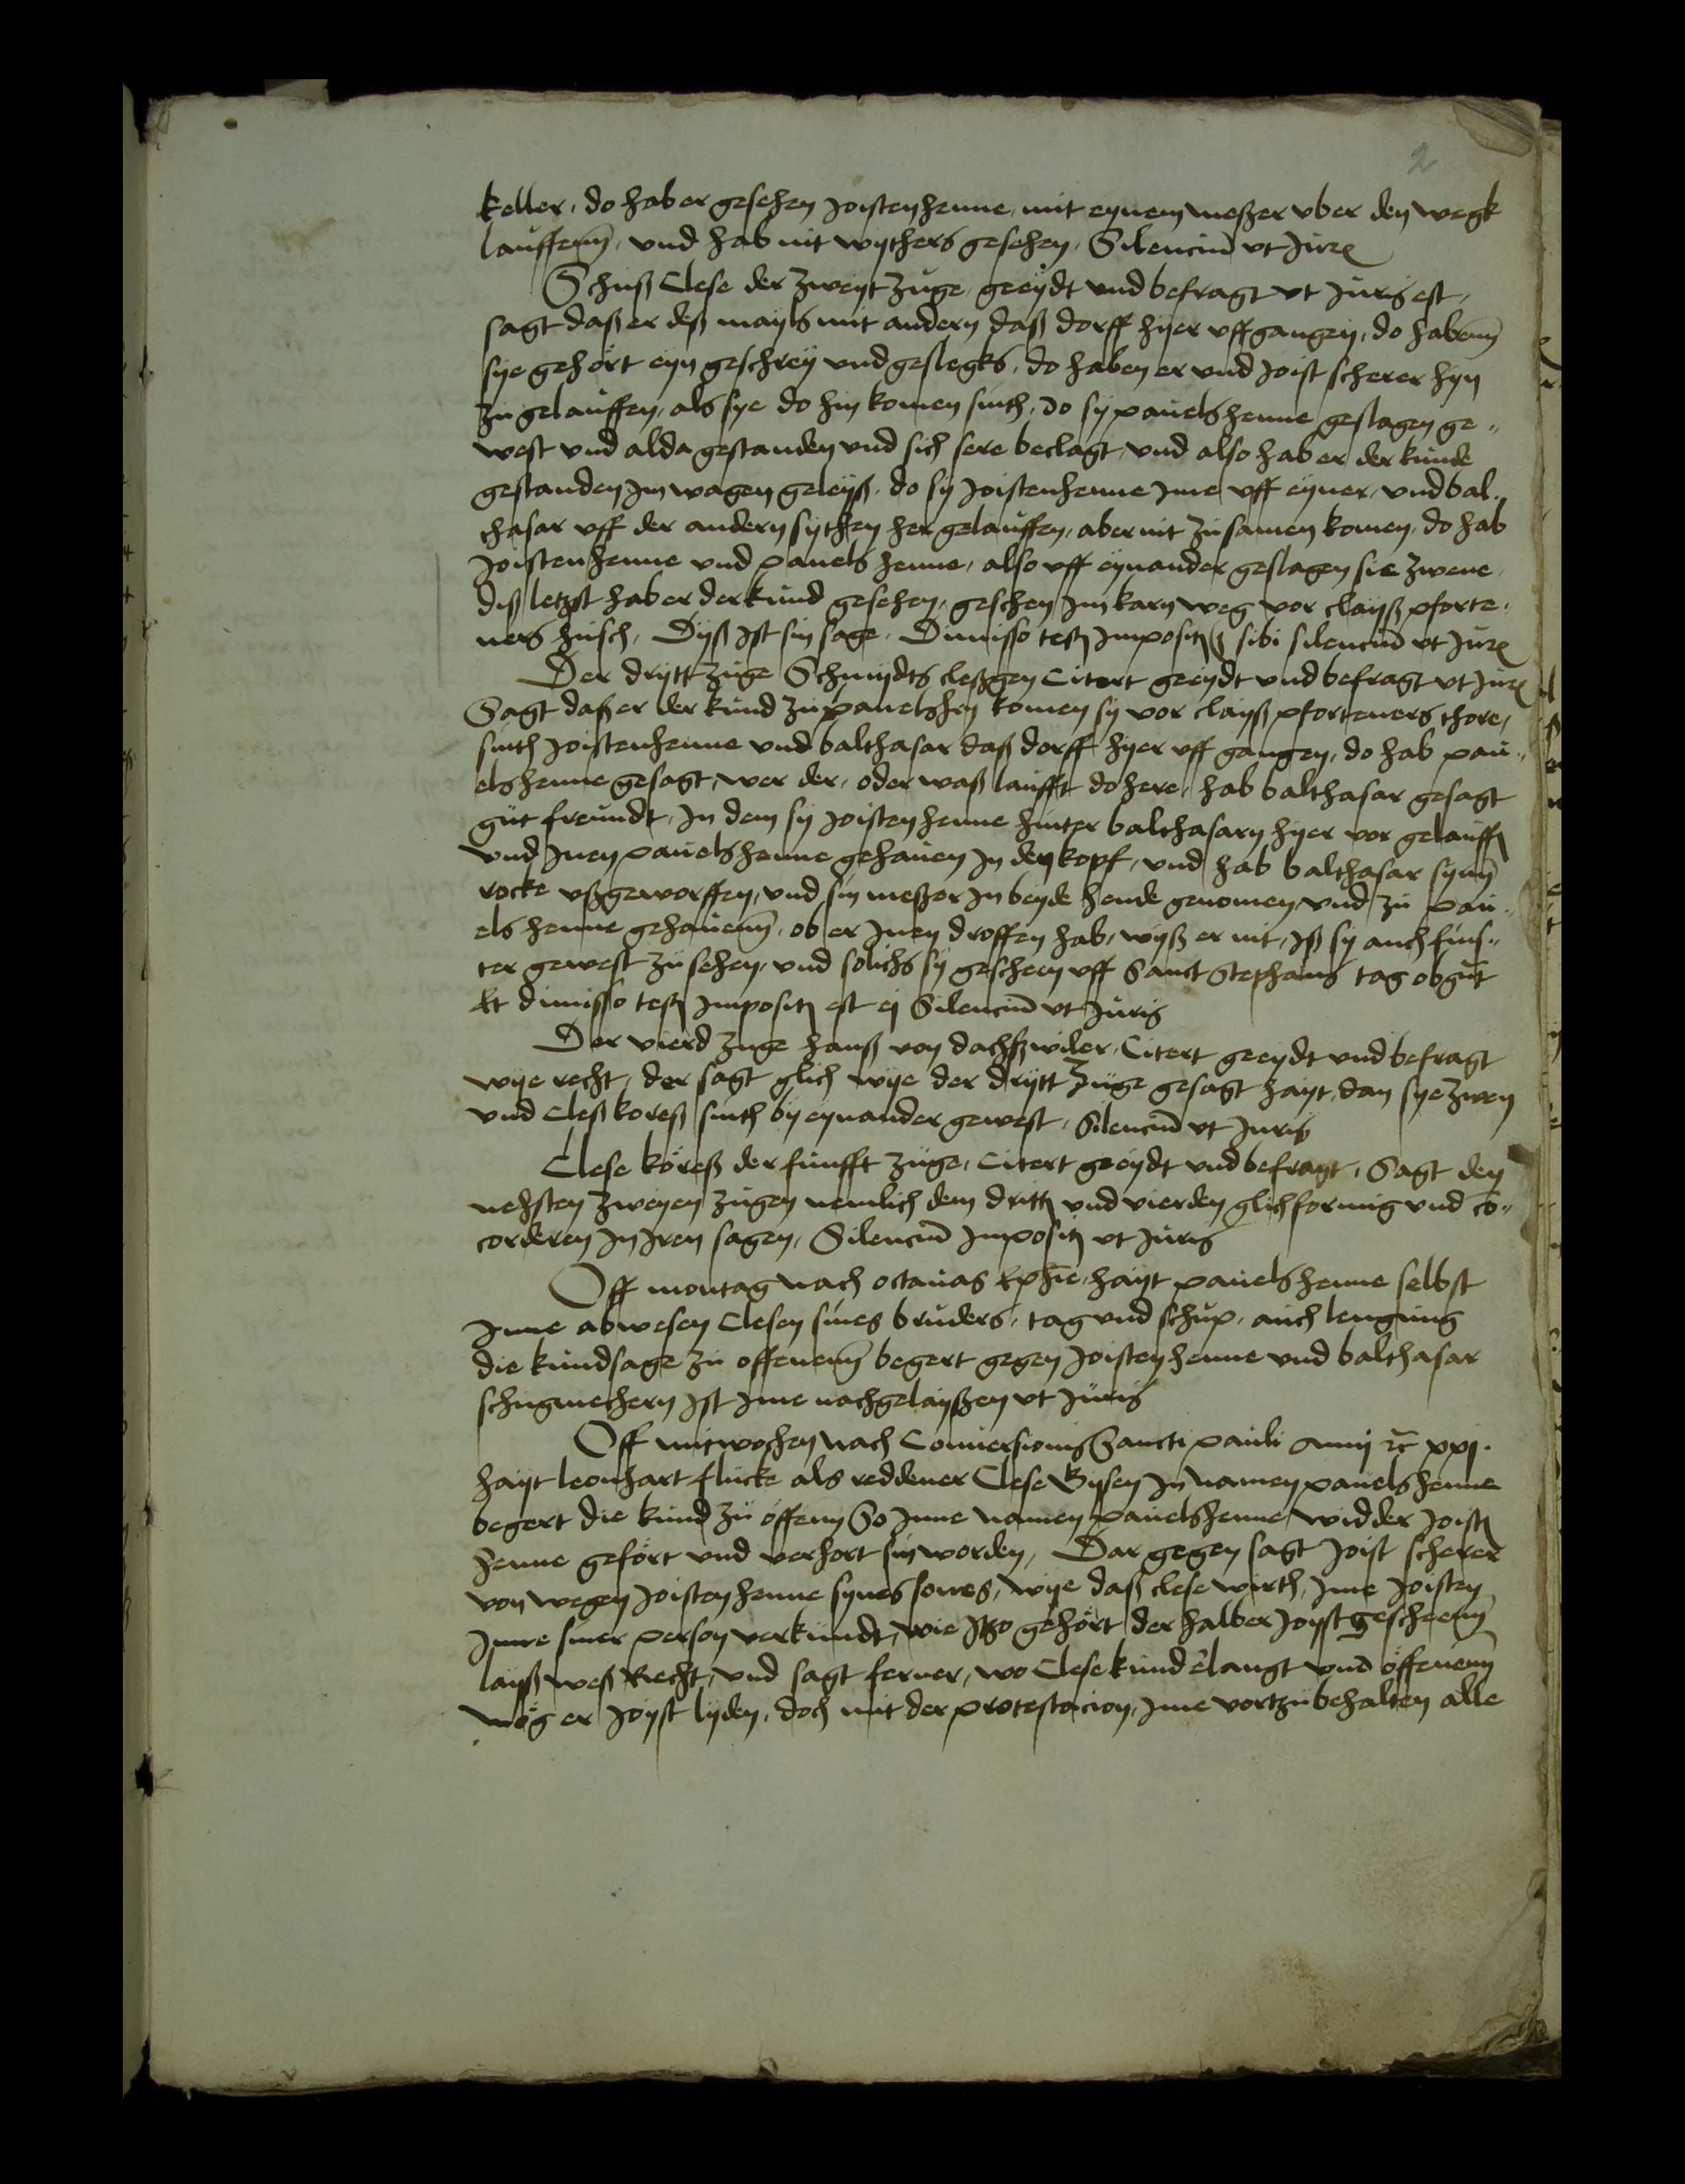 2
keller, do hab er gesehen Joistenhenne, mit eynem meßer vber den wegk
lauffenn, vnd hab nit wythers gesehen, Silenciū vt Jure
Schuß Clese der zweyt zuge, geeydt vnd befragt vt Juris est,
sagt daß er deß mayls mit andern daß dorff hyer vffgangen, do habenn
sye gehört eyn geschrey vnd geslegks, do haben er vnd Joist scherer hyn
zu gelauffen, als sye do hin komen sinth, do sy pauels henne geslagen ge„
west vnd alda gestanden vnd sich sere beclagt, vnd also hab er der kunde
gestanden Jm wagen geleyß, do sy Joistenhenne Jme vff eyner, vnd bal„
thasar vff der andern sythen her gelauffen, aber nit zu samen komen, do hab
Joistenhenne vnd pauels henne, also vff eynander geslagen sie zwene,
diß letzst hab er der kund gesehen, geschen Jm karn weg vor clayß pforte„
ners husch, Dyß Jst sin sage, Dimisso teste Jmpositū sibi silenciū vt Jure
Der drytt zuge Schmydts cleßgen Citert geeydt vnd befragt vt Jure
Sagt daß er der kund zu pauelshen komen sy vor clayß pforteners thore,
sinth Joistenhenne vnd balthasar daß dorff hyer vff gangen, do hab pau„
elshenne gesagt, wer der, oder waß laufft do here, hab balthasar gesagt
gut freundt, Jn dem sy Joistenhenne hinter balthasarn hyer vor gelauffen
vnd Jnen pauelshenne gehauen Jn den kopf, vnd hab balthasar synn
rocke vßgeworffen, vnd sin meßer Jn beyde hende genomen vnd zu pau„
els henne gehauenn, ob er Jnen droffen hab, wyß er nit, Jß sy auch fins„
ter gewest zu sehen, vnd solichs sy gescheen vff Sanct Stephans tag obgut
Et dimisso teste Jmpositū est ej Silenciū vt Juris
Der vierd zuge hanß von dachßwiler, Citert geeydt vnd befragt
wye recht, der sagt glich wye der drytt zuge gesagt hayt, dan sye zwen
vnd Cleß koreß sinth by eynander gewest, Silenciū vt Juris
Clese köreß der funfft zuge, Citert geeydt vnd befragt, Sagt den
nehsten zweyen zugen nemlich dem dritten vnd vierden glichformig vnd cō„
corderen Jn Jren sagen, Silenciū Jmpositū vt Juris
Off montag nach octauas Ephie, hayt pauelshenne selbst
Jnne abwesen Clesen sines bruders, tag vnd schup, auch lengning
die kundsage zu offenenn begert gegen Joistenhenne vnd balthasar
schugmechern Jst Jme nachgelayßen vt Juris
Off mitwochen nach Conuersionis Sancti pauli Anni ꝛc xxj.
hayt leonhart flucke als reddener Clese Bysen Jn namen pauelshenne
begert die kund zu öffenn So Jnne namen pauelshenne widder Joisten
henne gefört vnd verhort sin worden, Dar gegen sagt Joist scherer
von wegen Joistenhenne synes sones, wye daß clese wirth, Jme Joisten
Jnne siner person verkundt, wie Jtzo gehört der halber Joyst gescheenn
layß weß Recht, vnd sagt ferner, wo Clese kund elangt vnd öffenenn
mög er Joyst lyden, doch mit der protestacion, Jme vortzubehalten alle